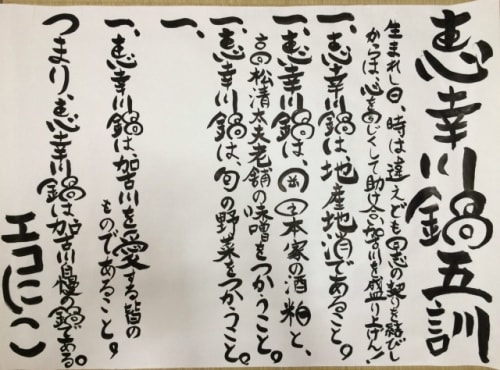 恵幸川鍋五訓
生まれし日、時は違えども同志の契りを結びし
からは、心を同じくして助け合い加古川を盛り上げん!
一、恵幸川鍋は地産地消であること。
一、恵幸川鍋は、岡田本家の酒粕と、
松清太夫老舗の味噌をつかうこと。
一、恵幸川鍋は、旬の野菜をつかうこと。
一、
一、恵幸川鍋は加古川を愛する皆の
ものであること。
つまり、恵幸川鍋は加古川自慢の鍋である。
エコにこ